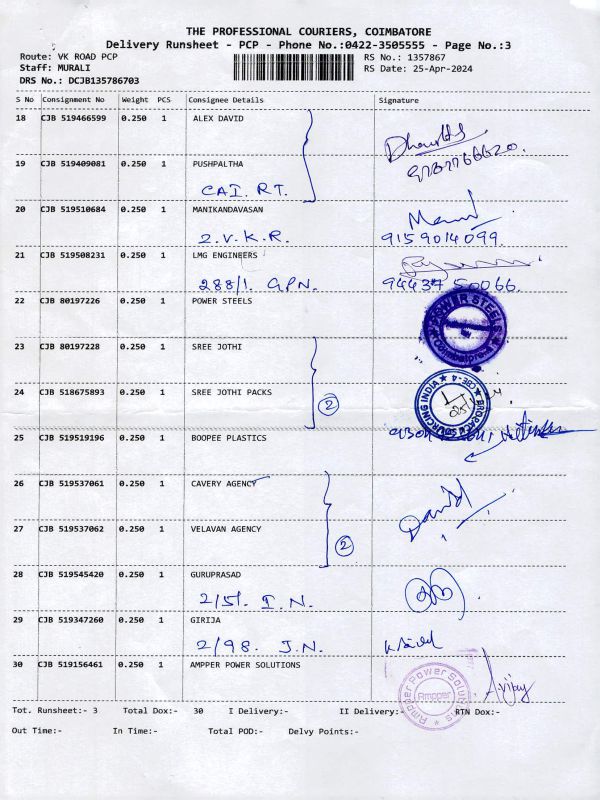 THE PROFESSIONAL COURIERS, COIMBATORE
Delivery Runsheet - PCP - Phone No.:0422-3505555 - Page No.:3
Route: VK ROAD PCP RS No.: 1357867
Staff: MURALI RS Date: 25-Apr-2024
DRS No.: DCJB135786703
S No Consignment No Weight PCS Consignee Details Signature
18 CJB 519466599 0.250 1 ALEX DAVID
19 CJB 519409081 0.250 1 PUSHPALTHA
CAI. R.T.
20 CJB 519510684 0.250 1 MANIKANDAVASAN
2.V.K.R. 9159014099.
21 CJB 519508231 0.250 1 LMG ENGINEERS
288/1. G.P.N. 94437 50066.
22 CJB 80197226 0.250 1 POWER STEELS
POWER STEELS
23 CJB 80197228 0.250 1 SREE JOTHI
24 CJB 518675893 0.250 1 SREE JOTHI PACKS
2
SOURCING INDIA CBE-4
25 CJB 519519196 0.250 1 BOOPEE PLASTICS
26 CJB 519537061 0.250 1 CAVERY AGENCY
David
27 CJB 519537062 0.250 1 VELAVAN AGENCY
2
28 CJB 519545420 0.250 1 GURUPRASAD
2/51. I.N.
29 CJB 519347260 0.250 1 GIRIJA
2/98. J.N.
30 CJB 519156461 0.250 1 AMPPER POWER SOLUTIONS
Ampper Power Solutions
Ampper
Vijay
Tot. Runsheet:- 3 Total Dox:- 30 I Delivery:- II Delivery:- RTN Dox:-
Out Time:- In Time:- Total POD:- Delvy Points:-